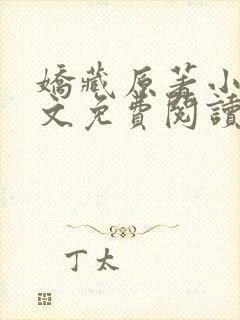 嬌藏原著小
文免費閱讀
丁太